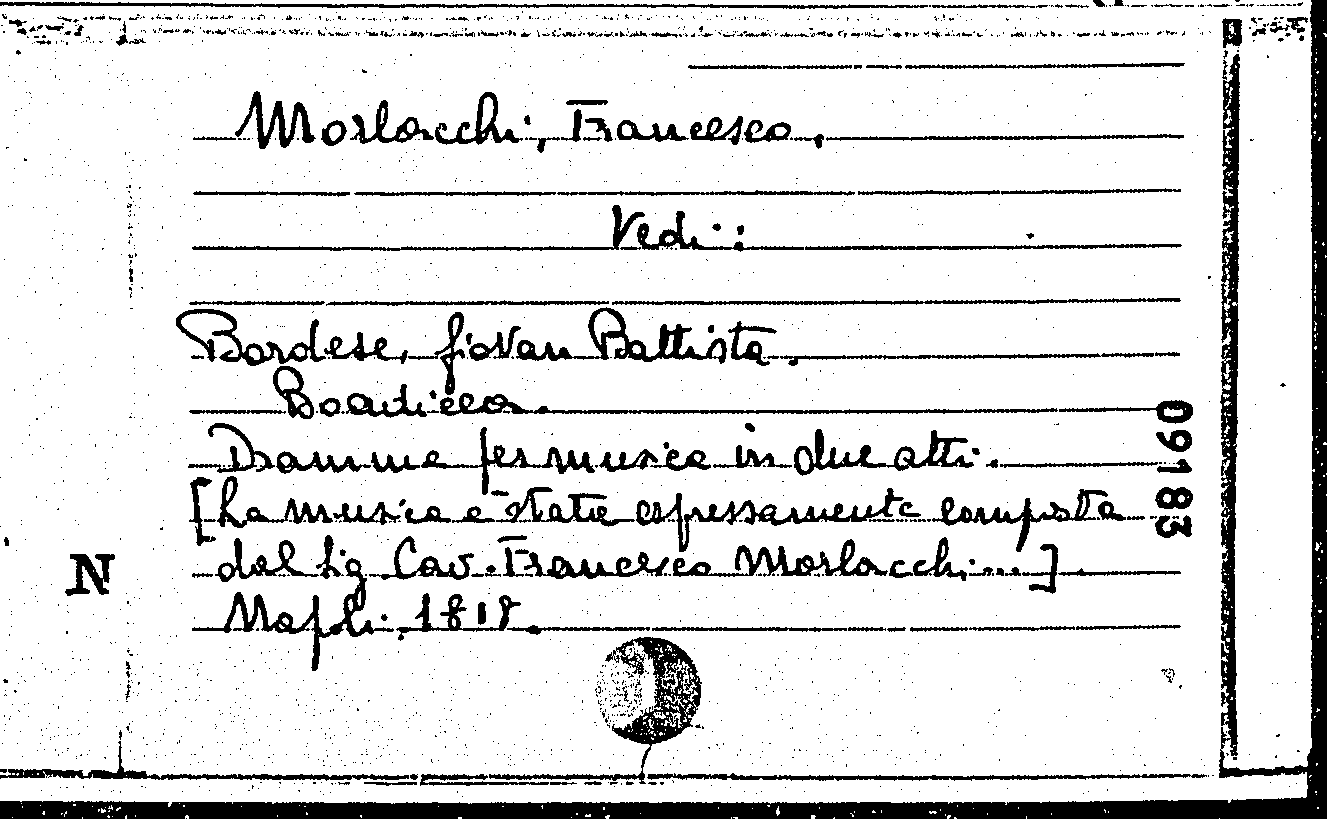 Morlacchi, Francesco.
Vedi:
Bordese, Giovan Battista.
Boadicea.
Dramma per musica in due atti.
[La musica è stata espressamente composta
dal Sig. Cav. Francesco Morlacchi...]
Napoli, 1818.
N
09183